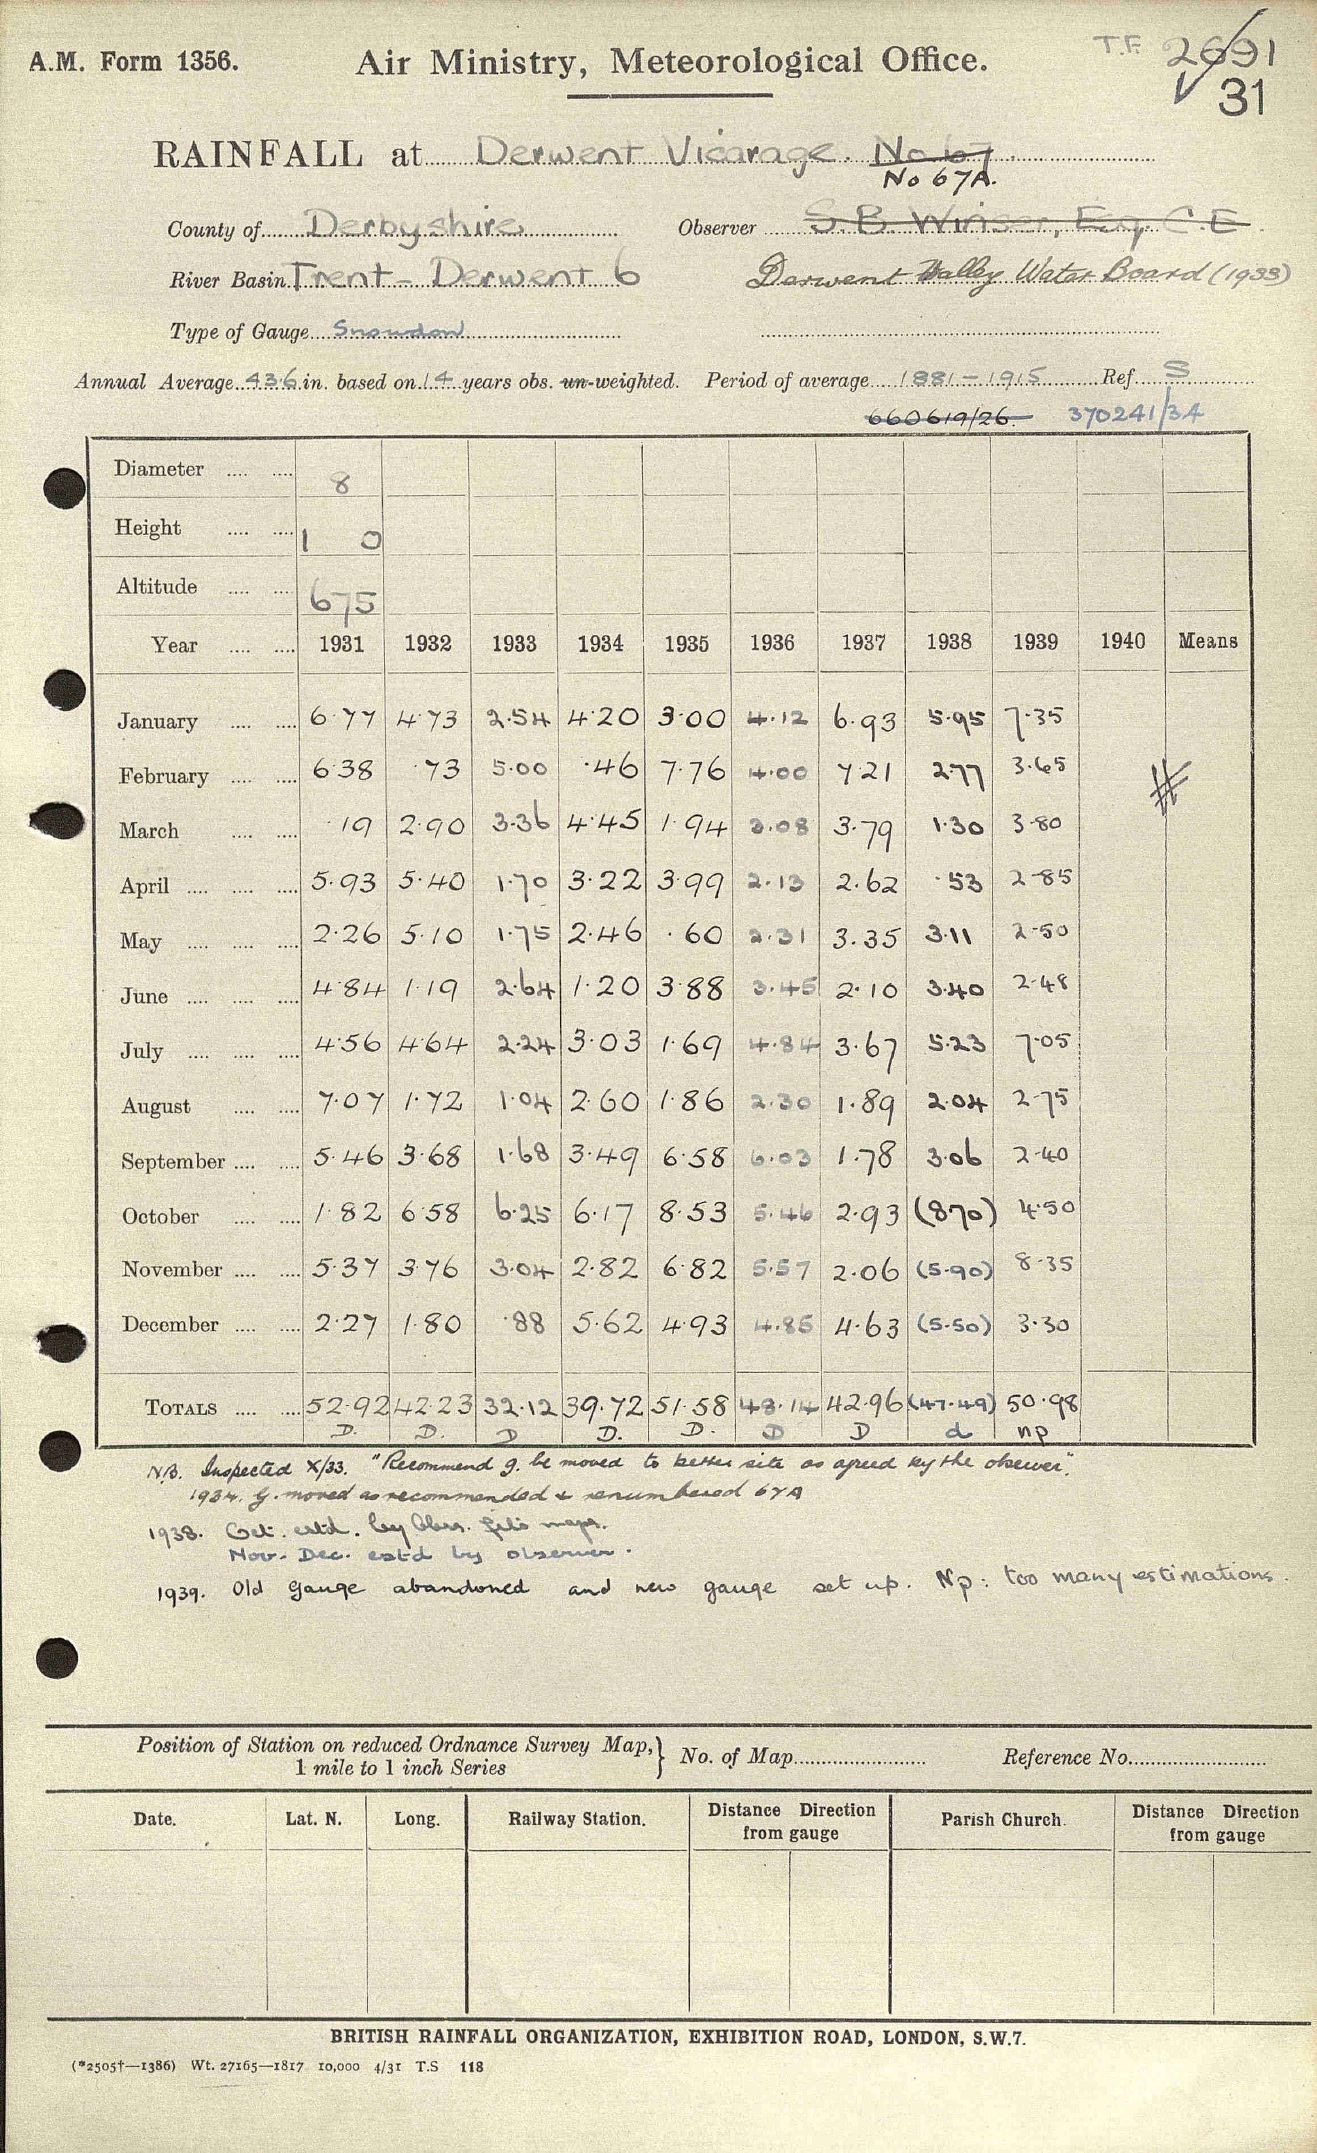 A.M. Form 1356.
Air Ministry, Meteorological Office.
T.F. 2691
31
RAINFALL at Derwent Vicarage. No 67
No 67A.
County of Derbyshire Observer S.B. Winser, Esq. C.E.
River Basin Trent - Derwent 6 Derwent Valley Water Board (1933)
Type of Gauge Snowdon
Annual Average 43.6 in. based on 14 years obs. un-weighted. Period of average 1881-1915 Ref S
660619/26. 370241/34
Diameter 8
Height 1 0
Altitude 675
Year 1931 1932 1933 1934 1935 1936 1937 1938 1939 1940 Means
January 6.77 4.73 2.54 4.20 3.00 4.12 6.93 5.95 7.35
February 6.38 .73 5.00 .46 7.76 4.00 7.21 2.77 3.65
March .19 2.90 3.36 4.45 1.94 3.08 3.79 1.30 3.80
April 5.93 5.40 1.70 3.22 3.99 2.13 2.62 .53 2.85
May 2.26 5.10 1.75 2.46 .60 2.31 3.35 3.11 2.50
June 4.84 1.19 2.64 1.20 3.88 3.45 2.10 3.40 2.48
July 4.56 4.64 2.24 3.03 1.69 4.84 3.67 5.23 7.05
August 7.07 1.72 1.04 2.60 1.86 2.30 1.89 2.04 2.75
September 5.46 3.68 1.68 3.49 6.58 6.03 1.78 3.06 2.40
October 1.82 6.58 6.25 6.17 8.53 5.46 2.93 (8.70) 4.50
November 5.37 3.76 3.04 2.82 6.82 5.57 2.06 (5.90) 8.35
December 2.27 1.80 .88 5.62 4.93 4.85 4.63 (5.50) 3.30
TOTALS 52.92 42.23 32.12 39.72 51.58 48.14 42.96 (47.49) 50.98
D. D. D D. D. D D d np
NB. Inspected X/33. "Recommend g. be moved to better site as agreed by the observer".
1934. G. moved as recommended & renumbered 67A
1938. Oct. estd. by Obsr. fits maps.
Nov. Dec. estd by observer.
1939. Old gauge abandoned and new gauge set up. Np: too many estimations.
Position of Station on reduced Ordnance Survey Map, } No. of Map Reference No.
1 mile to 1 inch Series
Date. Lat. N. Long. Railway Station. Distance Direction from gauge Parish Church. Distance Direction from gauge
BRITISH RAINFALL ORGANIZATION, EXHIBITION ROAD, LONDON, S.W.7.
(*2505†—1386) Wt. 27165—1817 10,000 4/31 T.S 118